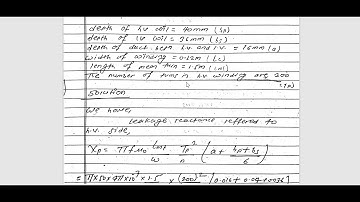 depth of h.v coil = 40mm (bp)
depth of l.v coil = 36mm (bs)
depth of duct betn h.v and l.v = 16mm (a)
width of winding = 0.12m (w)
length of mean turn = 1.5m (Lmt)
The number of turns in h.v winding are 200 (Tp)
Solution
We have,
Leakage reactance reffered to
h.v. side,
Xp = πfμ0 Lmt/w Tp²/n (a + bp+bs/6)
= π×50×4π×10⁻⁷×1.5 × (200)² [0.016 + 0.04+0.036]